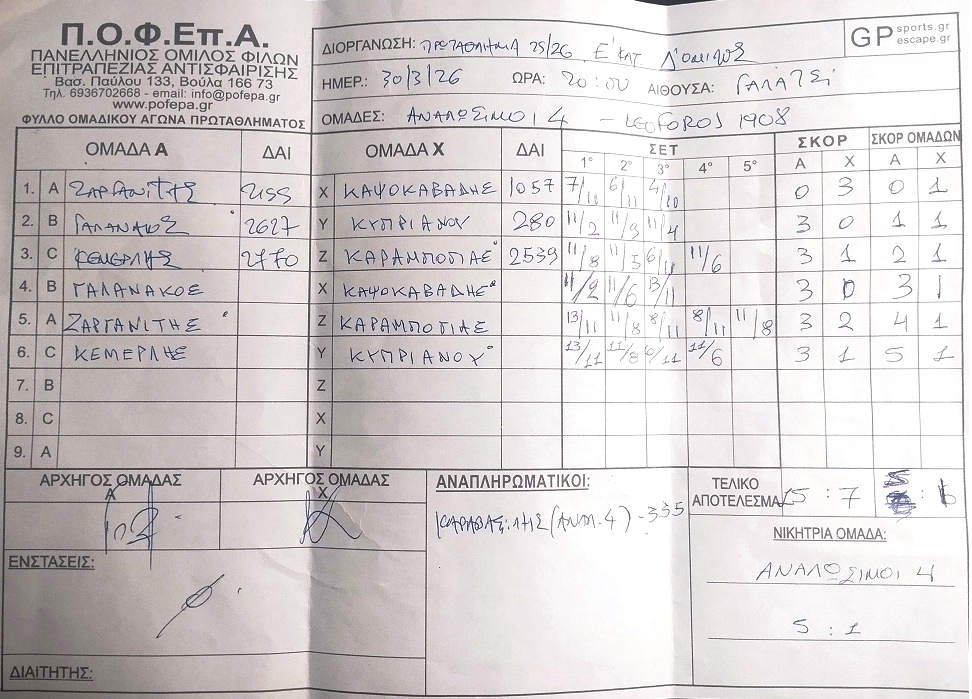 Π.Ο.Φ.Επ.Α.
ΠΑΝΕΛΛΗΝΙΟΣ ΟΜΙΛΟΣ ΦΙΛΩΝ
ΕΠΙΤΡΑΠΕΖΙΑΣ ΑΝΤΙΣΦΑΙΡΙΣΗΣ
Βασ. Παύλου 133, Βούλα 166 73
Τηλ. 6936702668 - email: info@pofepa.gr
www.pofepa.gr
ΦΥΛΛΟ ΟΜΑΔΙΚΟΥ ΑΓΩΝΑ ΠΡΩΤΑΘΛΗΜΑΤΟΣ
ΔΙΟΡΓΑΝΩΣΗ: ΠΡΩΤΑΘΛΗΜΑ 25/26 Ε' ΚΑΤ Δ' ΟΜΙΛΟΣ
GP sports.gr
escape.gr
ΗΜΕΡ.: 30/3/26 ΩΡΑ: 20:00 ΑΙΘΟΥΣΑ: ΓΑΛΑΤΣΙ
ΟΜΑΔΕΣ: ΑΝΑΛΩΣΙΜΟΙ 4 - LEOFOROS 1908
ΟΜΑΔΑ Α ΔΑΙ ΟΜΑΔΑ Χ ΔΑΙ ΣΕΤ ΣΚΟΡ ΣΚΟΡ ΟΜΑΔΩΝ
1° 2° 3° 4° 5° Α Χ Α Χ
1. A ΖΑΡΓΑΝΙΤΗΣ X ΚΑΨΟΚΑΒΑΔΗΣ 1057 7/11 6/11 0 3 0 1
2. B 2627 Y ΚΥΠΡΙΑΝΟΥ 280 11/2 11/9 11/4 3 0 1 1
3. C ΚΕΜΕΡΛΗΣ 2770 Z ΚΑΡΑΜΠΟΤΙΑΣ 2539 11/8 11/5 6/11 11/6 3 1 2 1
4. B ΓΑΛΑΝΑΚΟΣ X ΚΑΨΟΚΑΒΑΔΗΣ 11/2 11/6 13/11 3 0 3 1
5. A ΖΑΡΓΑΝΙΤΗΣ Z ΚΑΡΑΜΠΟΤΙΑΣ 13/11 11/8 8/11 8/11 11/8 3 2 4 1
6. C ΚΕΜΕΡΛΗΣ Y ΚΥΠΡΙΑΝΟΥ 13/11 11/8 11/6 3 1 5 1
7. B Z
8. C X
9. A Y
ΑΡΧΗΓΟΣ ΟΜΑΔΑΣ Α
ΑΡΧΗΓΟΣ ΟΜΑΔΑΣ Χ
ΑΝΑΠΛΗΡΩΜΑΤΙΚΟΙ:
(ΑΝΑΛ. 4) - 335
ΤΕΛΙΚΟ ΑΠΟΤΕΛΕΣΜΑ 15 : 7
ΝΙΚΗΤΡΙΑ ΟΜΑΔΑ:
ΑΝΑΛΩΣΙΜΟΙ 4
5 : 1
ΕΝΣΤΑΣΕΙΣ:
ΔΙΑΙΤΗΤΗΣ: